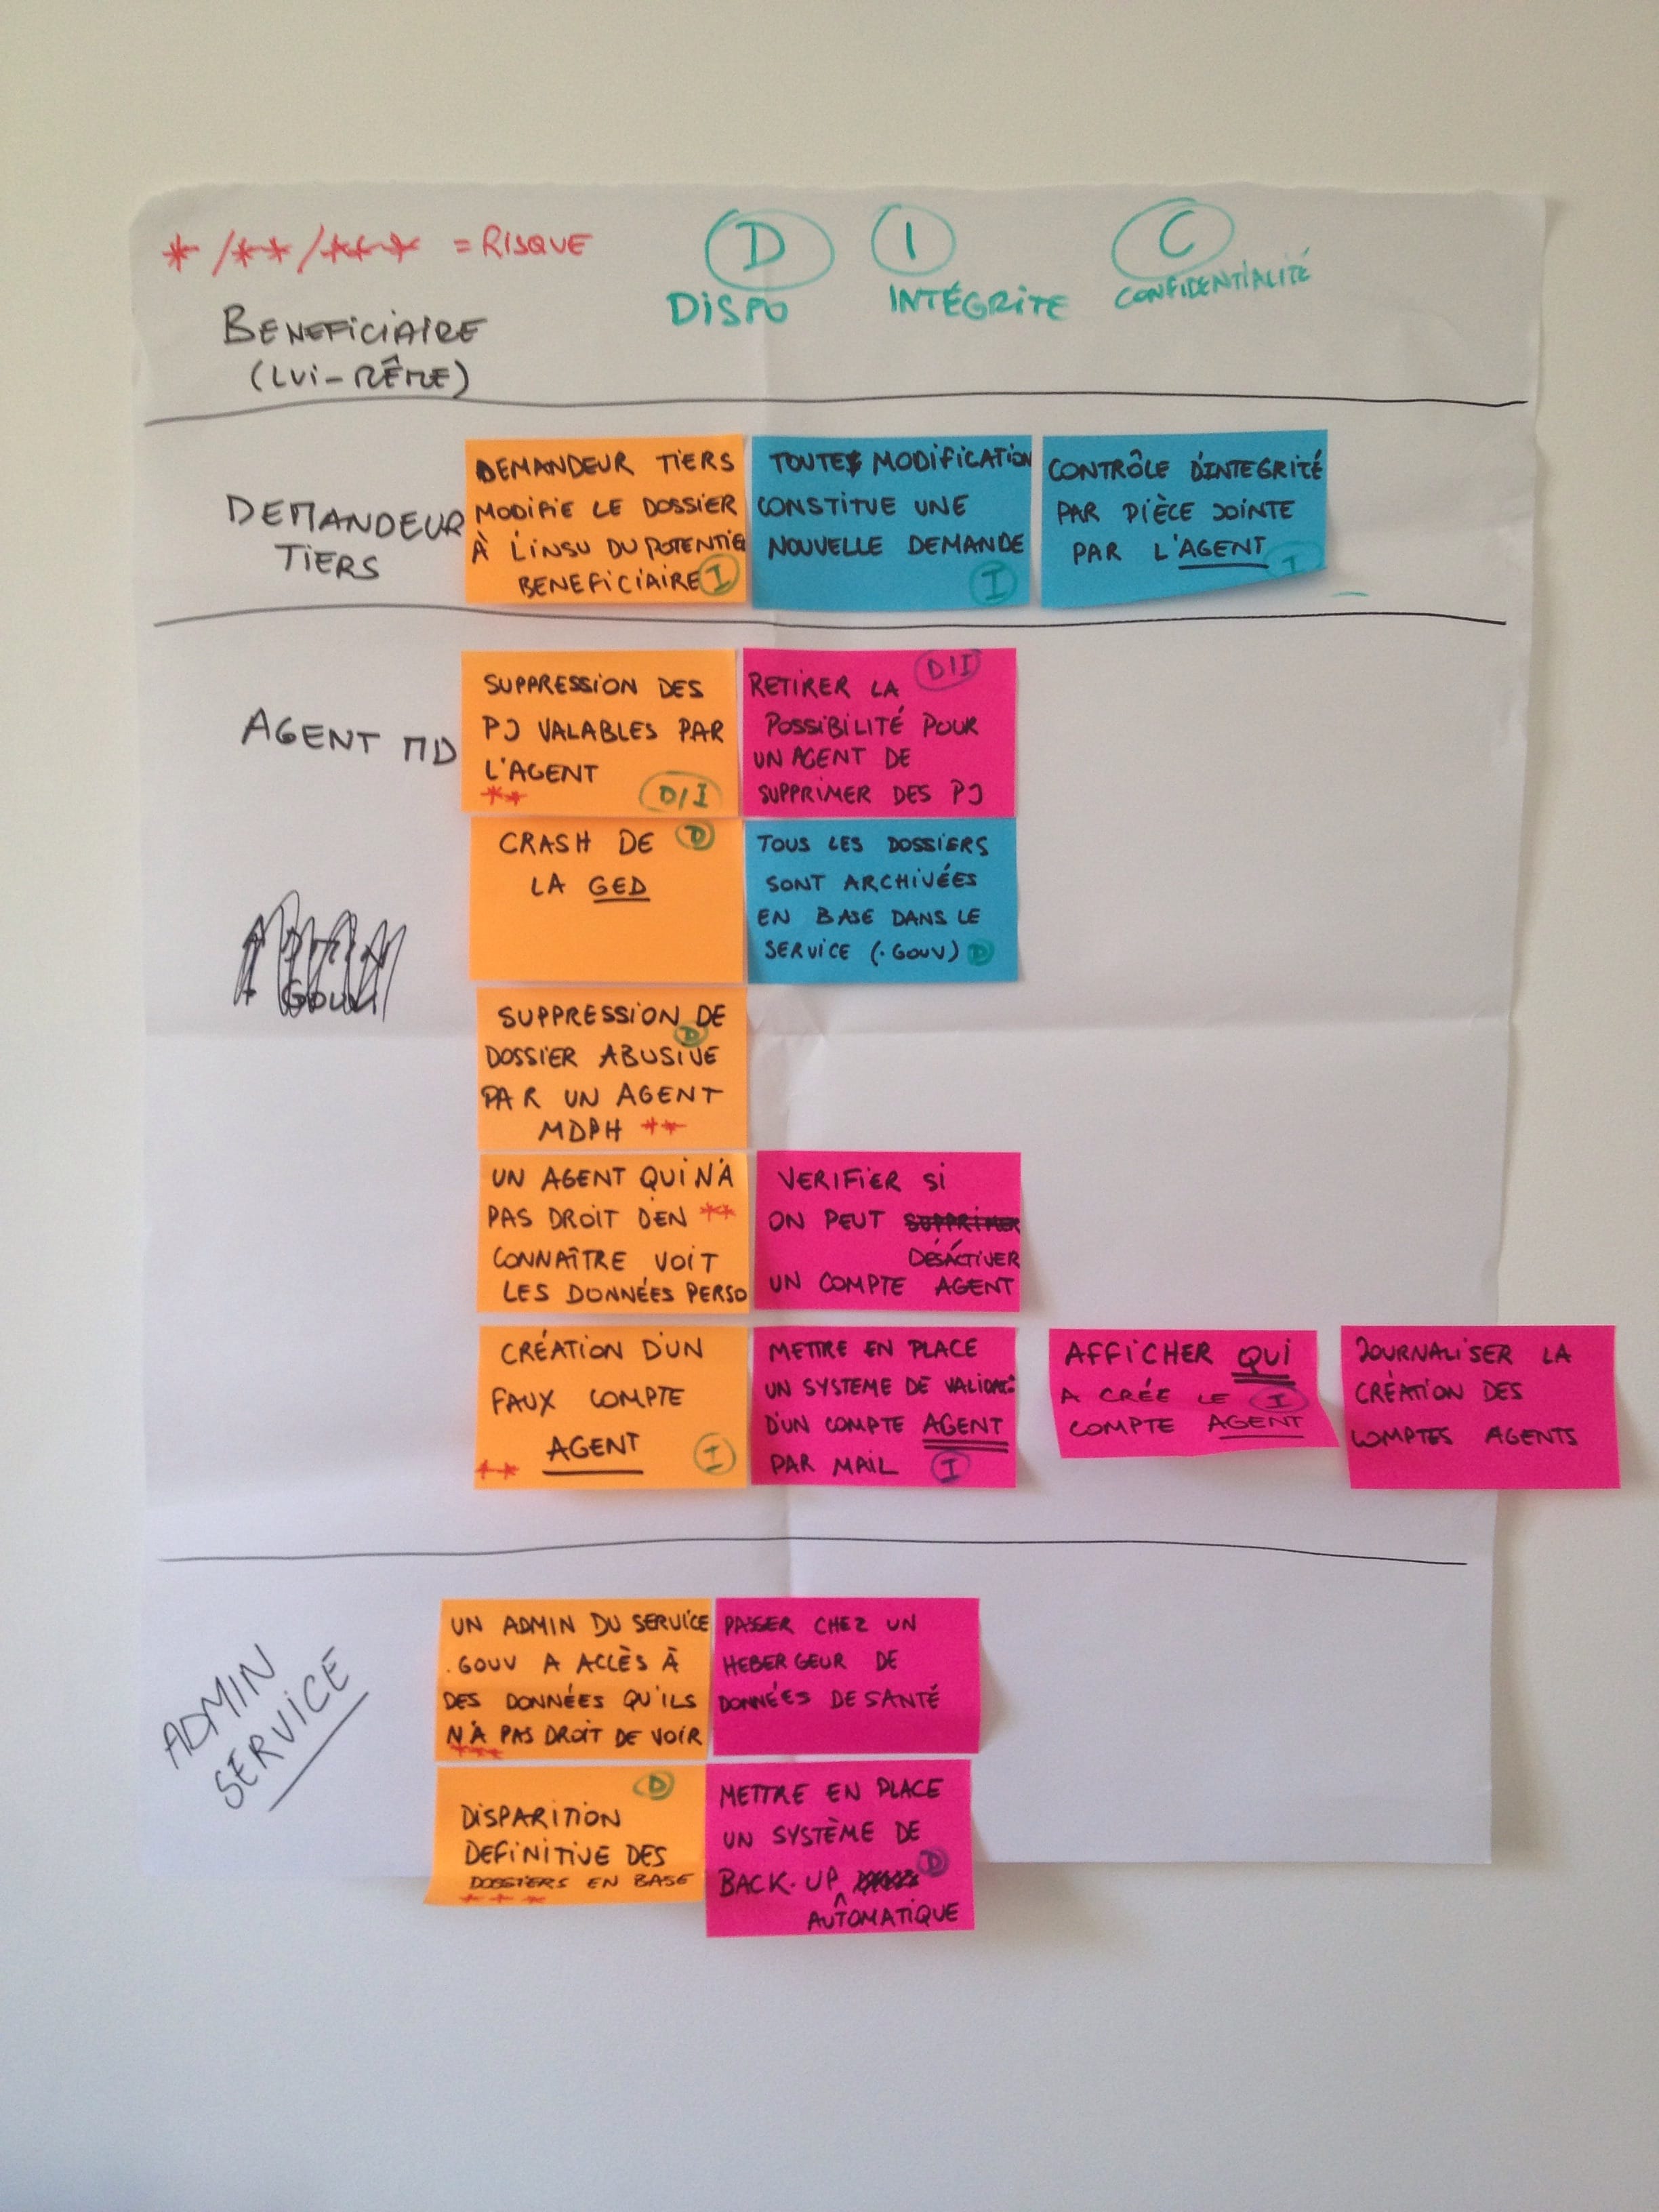 * / ** / *** = RISQUE
D
DISPO
I
INTÉGRITE
C
CONFIDENTIALITÉ
BENEFICIAIRE
(LUI-MÊME)
DEMANDEUR
TIERS
DEMANDEUR TIERS
MODIFIE LE DOSSIER
À L'INSU DU POTENTIE
BENEFICIAIRE I
TOUTES MODIFICATION
CONSTITUE UNE
NOUVELLE DEMANDE
I
CONTRÔLE D'INTEGRITÉ
PAR PIÈCE JOINTE
PAR L'AGENT I
AGENT MD
SUPPRESSION DES
PJ VALABLES PAR
L'AGENT
** D/I
D/I
RETIRER LA
POSSIBILITÉ POUR
UN AGENT DE
SUPPRIMER DES PJ
CRASH DE D
LA GED
TOUS LES DOSSIERS
SONT ARCHIVÉES
EN BASE DANS LE
SERVICE (.GOUV) D
GOUV
SUPPRESSION DE
D
DOSSIER ABUSIVE
PAR UN AGENT
MDPH **
UN AGENT QUI N'A
PAS DROIT D'EN **
CONNAÎTRE VOIT
LES DONNÉES PERSO
VERIFIER SI
ON PEUT SUPPRIMER
DÉSACTIVER
UN COMPTE AGENT
CRÉATION D'UN
FAUX COMPTE
AGENT
** I
METTRE EN PLACE
UN SYSTEME DE VALIDAT.
D'UN COMPTE AGENT
PAR MAIL I
AFFICHER QUI
A CRÉE LE I
COMPTE AGENT
JOURNALISER LA
CRÉATION DES
COMPTES AGENTS
ADMIN
SERVICE
UN ADMIN DU SERVICE
.GOUV A ACCÈS À
DES DONNÉES QU'ILS
N'A PAS DROIT DE VOIR
***
PASSER CHEZ UN
HEBERGEUR DE
DONNÉES DE SANTÉ
D
DISPARITION
DEFINITIVE DES
DOSSIERS EN BASE
***
METTRE EN PLACE
UN SYSTÈME DE
BACK-UP D
AUTOMATIQUE